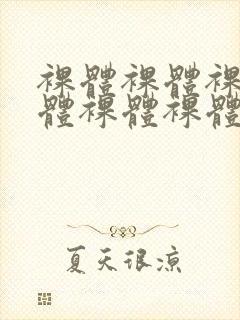 裸體裸體裸
體裸體裸體
夏天很涼